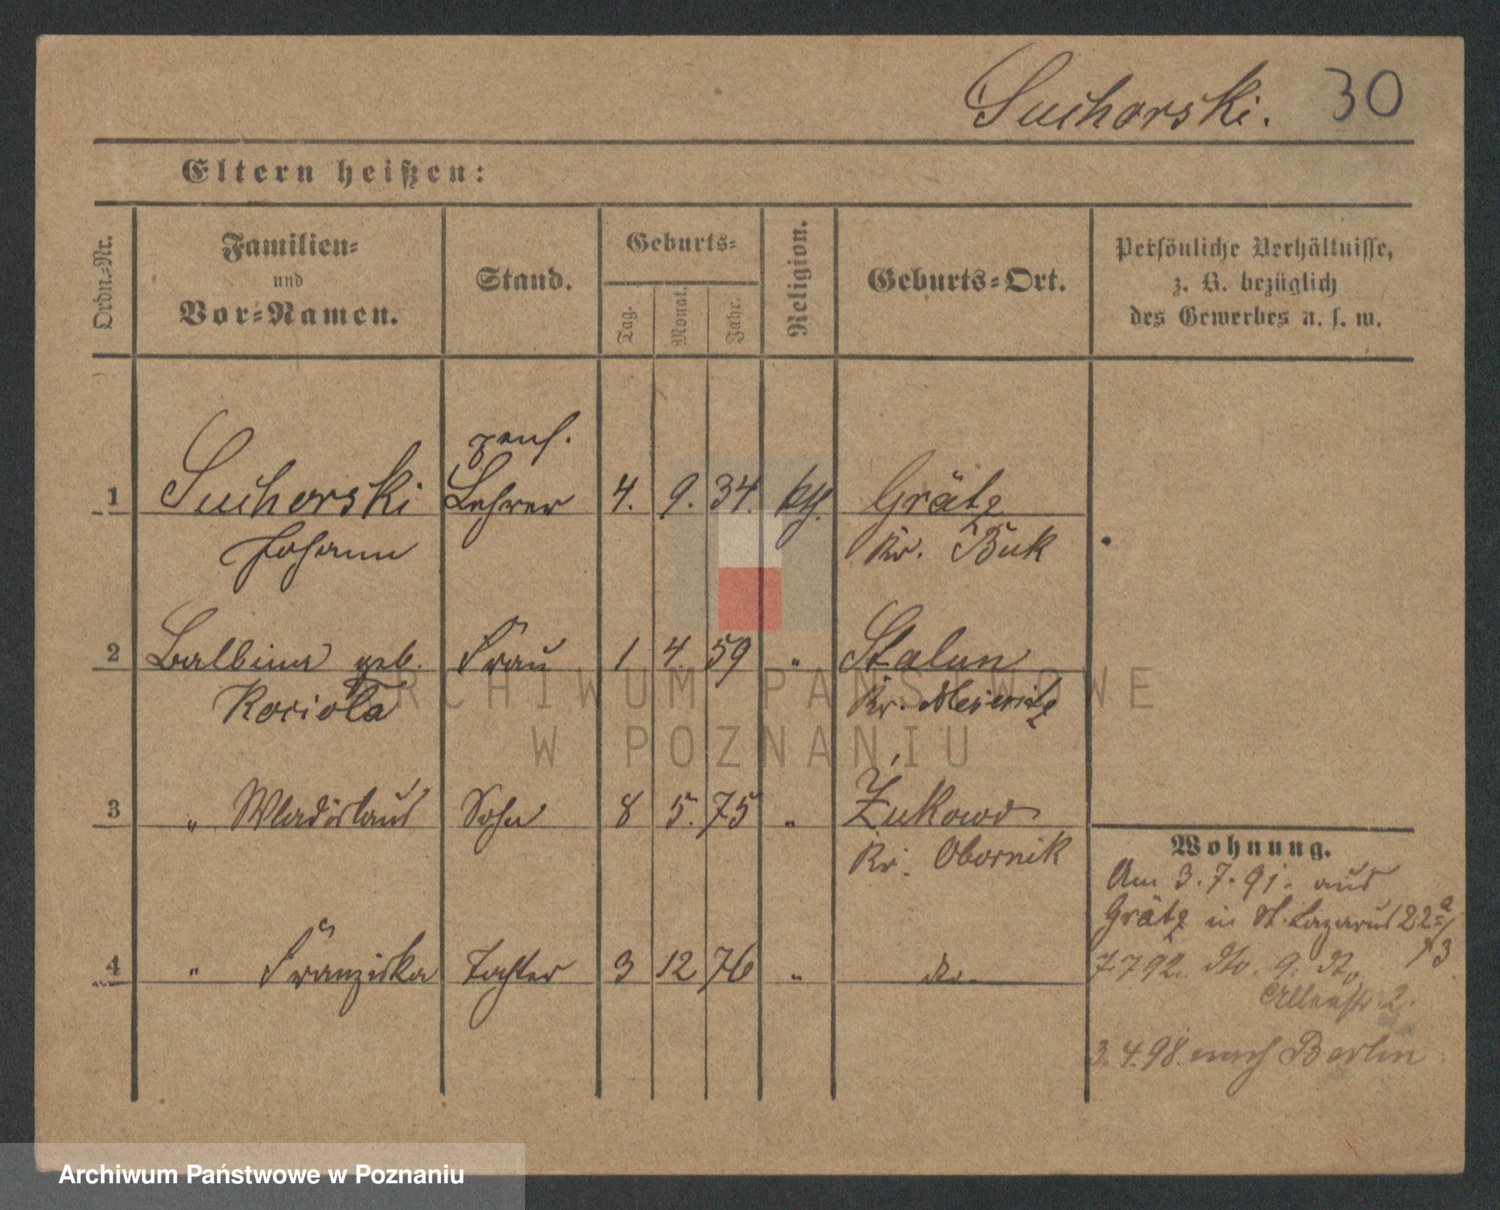 Suchorski. 30
Eltern heißen:
Ordn.-Nr.
Familien-
und
Vor-Namen.
Stand.
Geburts-
Tag.
Monat.
Jahr.
Religion.
Geburts-Ort.
Persönliche Verhältnisse,
z. B. bezüglich
des Gewerbes u. s. w.
pens.
1 Suchorski Lehrer 4. 9. 34. kth. Grätz
Johann Kr. Buk
2 Balbina geb. Frau 1 4. 59 " Stalun
Kociola Kr. Meseritz
3 " Wladislaus Sohn 8 5. 75 " Żukowo
Kr. Obornik
4 " Franziska Tochter 3 12 76 " do.
Wohnung.
Am 3.7.91. aus
Grätz in St. Lazarus 22a/
13
7 7 92. dto. 9. dto
3.4.98. nach Berlin
ARCHIWUM PAŃSTWOWE
W POZNANIU
Archiwum Państwowe w Poznaniu